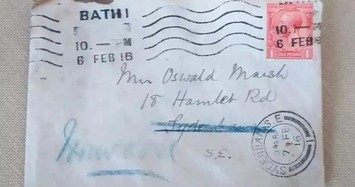 BATH
10. — PM
6 FEB 16
10. — PM
6 FEB 16
Mrs Oswald Marsh
18 Hamlet Rd
Sydenham
S.E.
SYDENHAM S.E.
7 FE
16